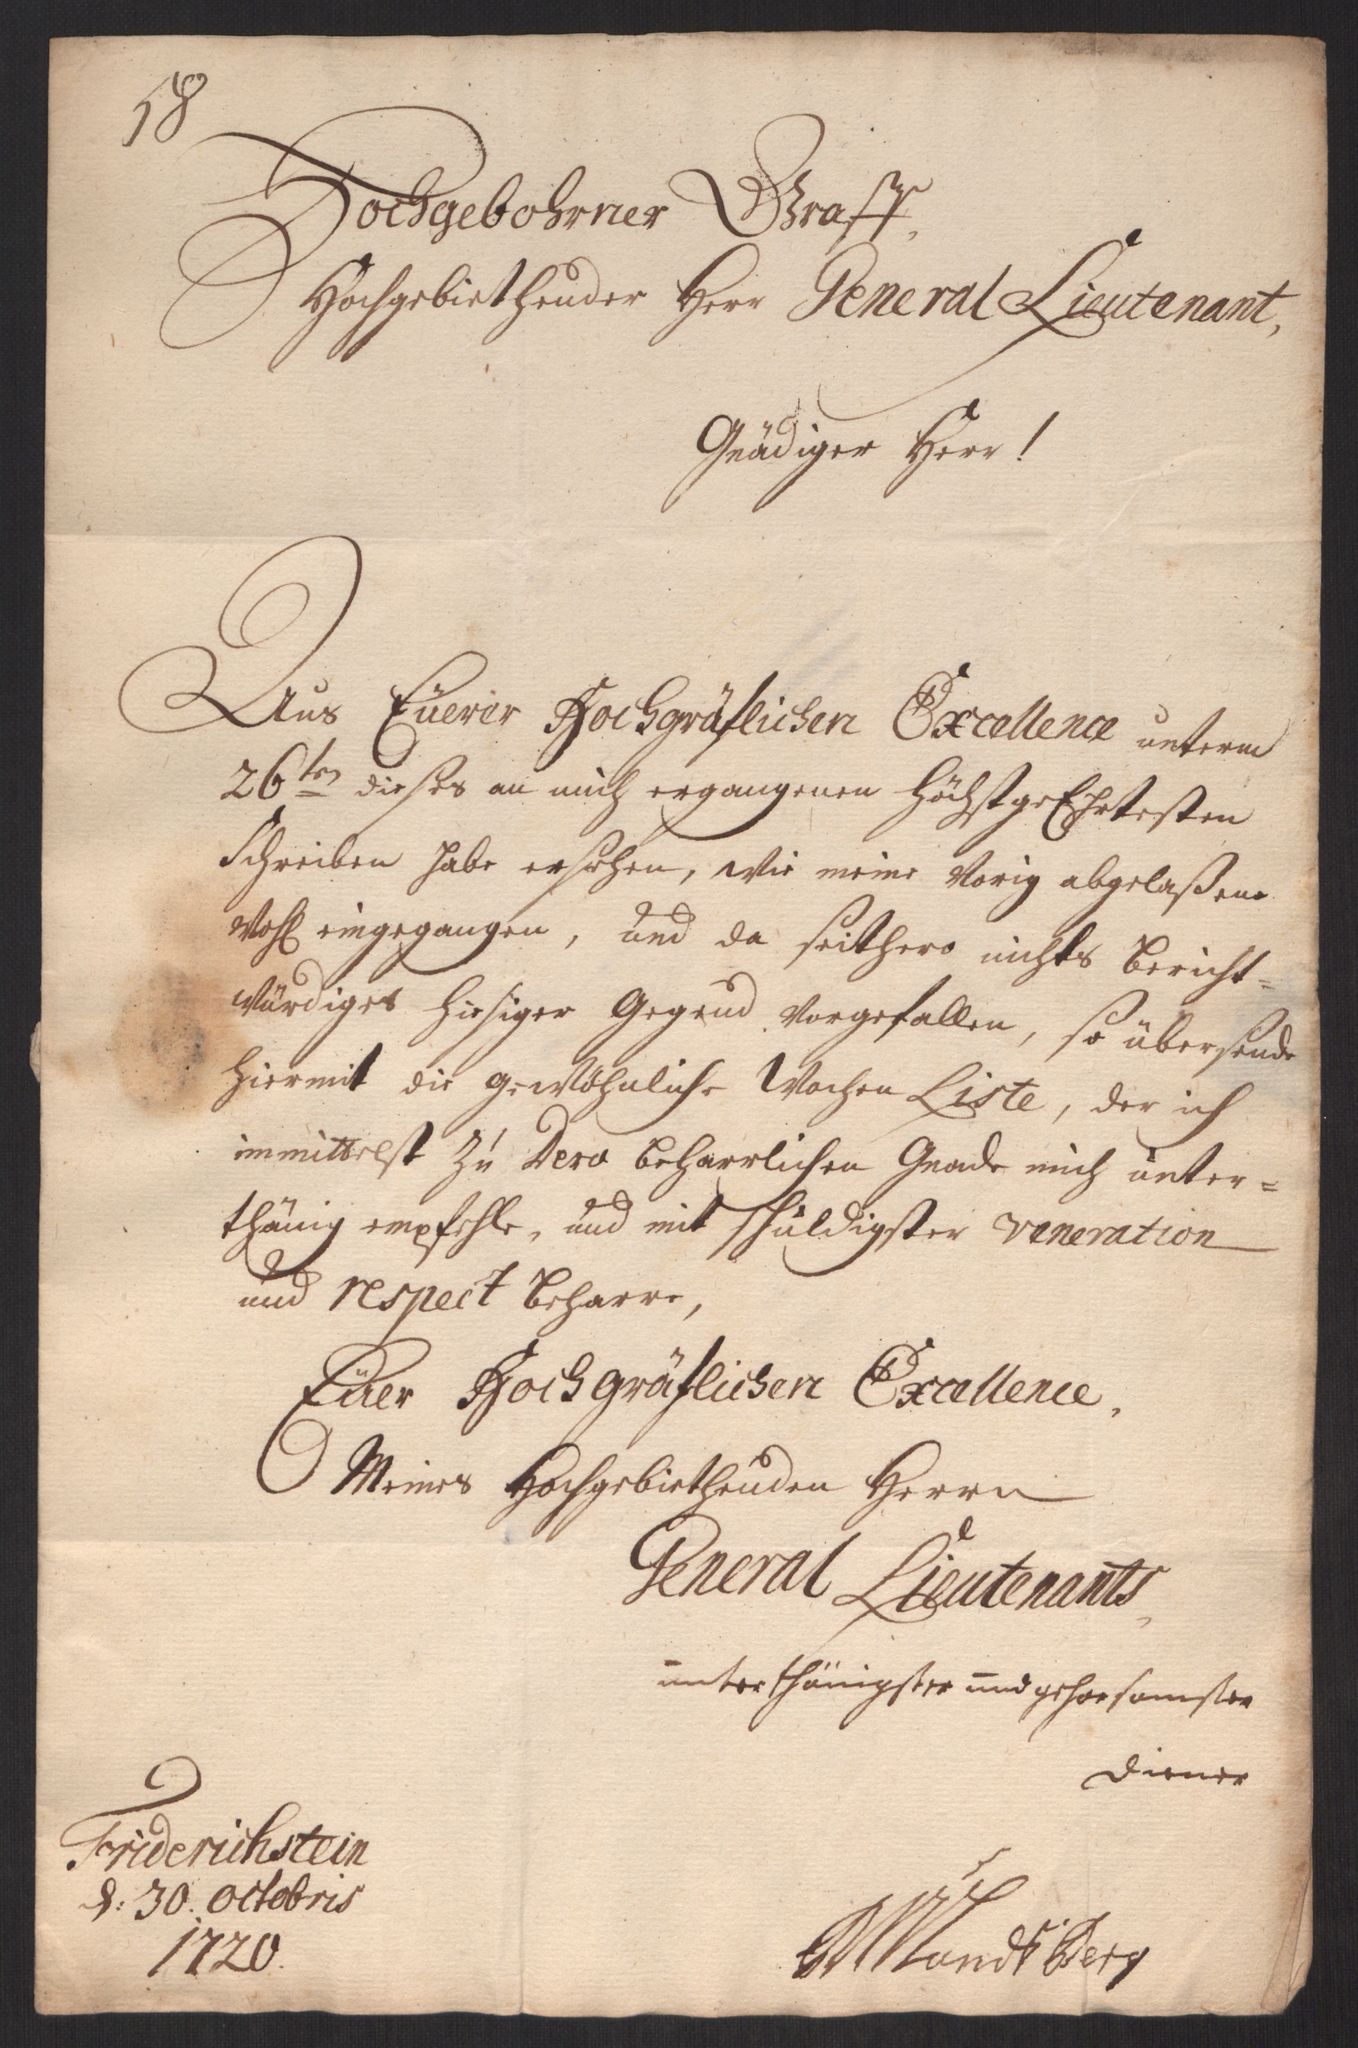 58
Hochgebohrner Graff,
Hochgebiethender Herr General Lieutenant,
Gnädiger Herr!
Aus Eüerer Hochgräflichen Excellence unterm
26ten dieses an mich ergangenen HöchstgeEhrtesten
Schreiben habe ersehen, wie meine Vorig abgelaßene
Wohl eingegangen, und da seithero nichts bericht-
würdiges hiesiger Gegend Vorgefallen, so übersende
hiermit die gewöhnliche Wochen Liste, der ich
immittelst zu Dero beharrlichen Gnade mich unter-
thänig empfehle, und mit schuldigster veneration
und respect beharre,
Eüer Hochgräflichen Excellence,
Meines Hochgebiethenden Herrn
General Lieutenants,
unterthänigster und gehorsamster
Diener
Friderichstein
d: 30. octobris
1720.
Mandtberg